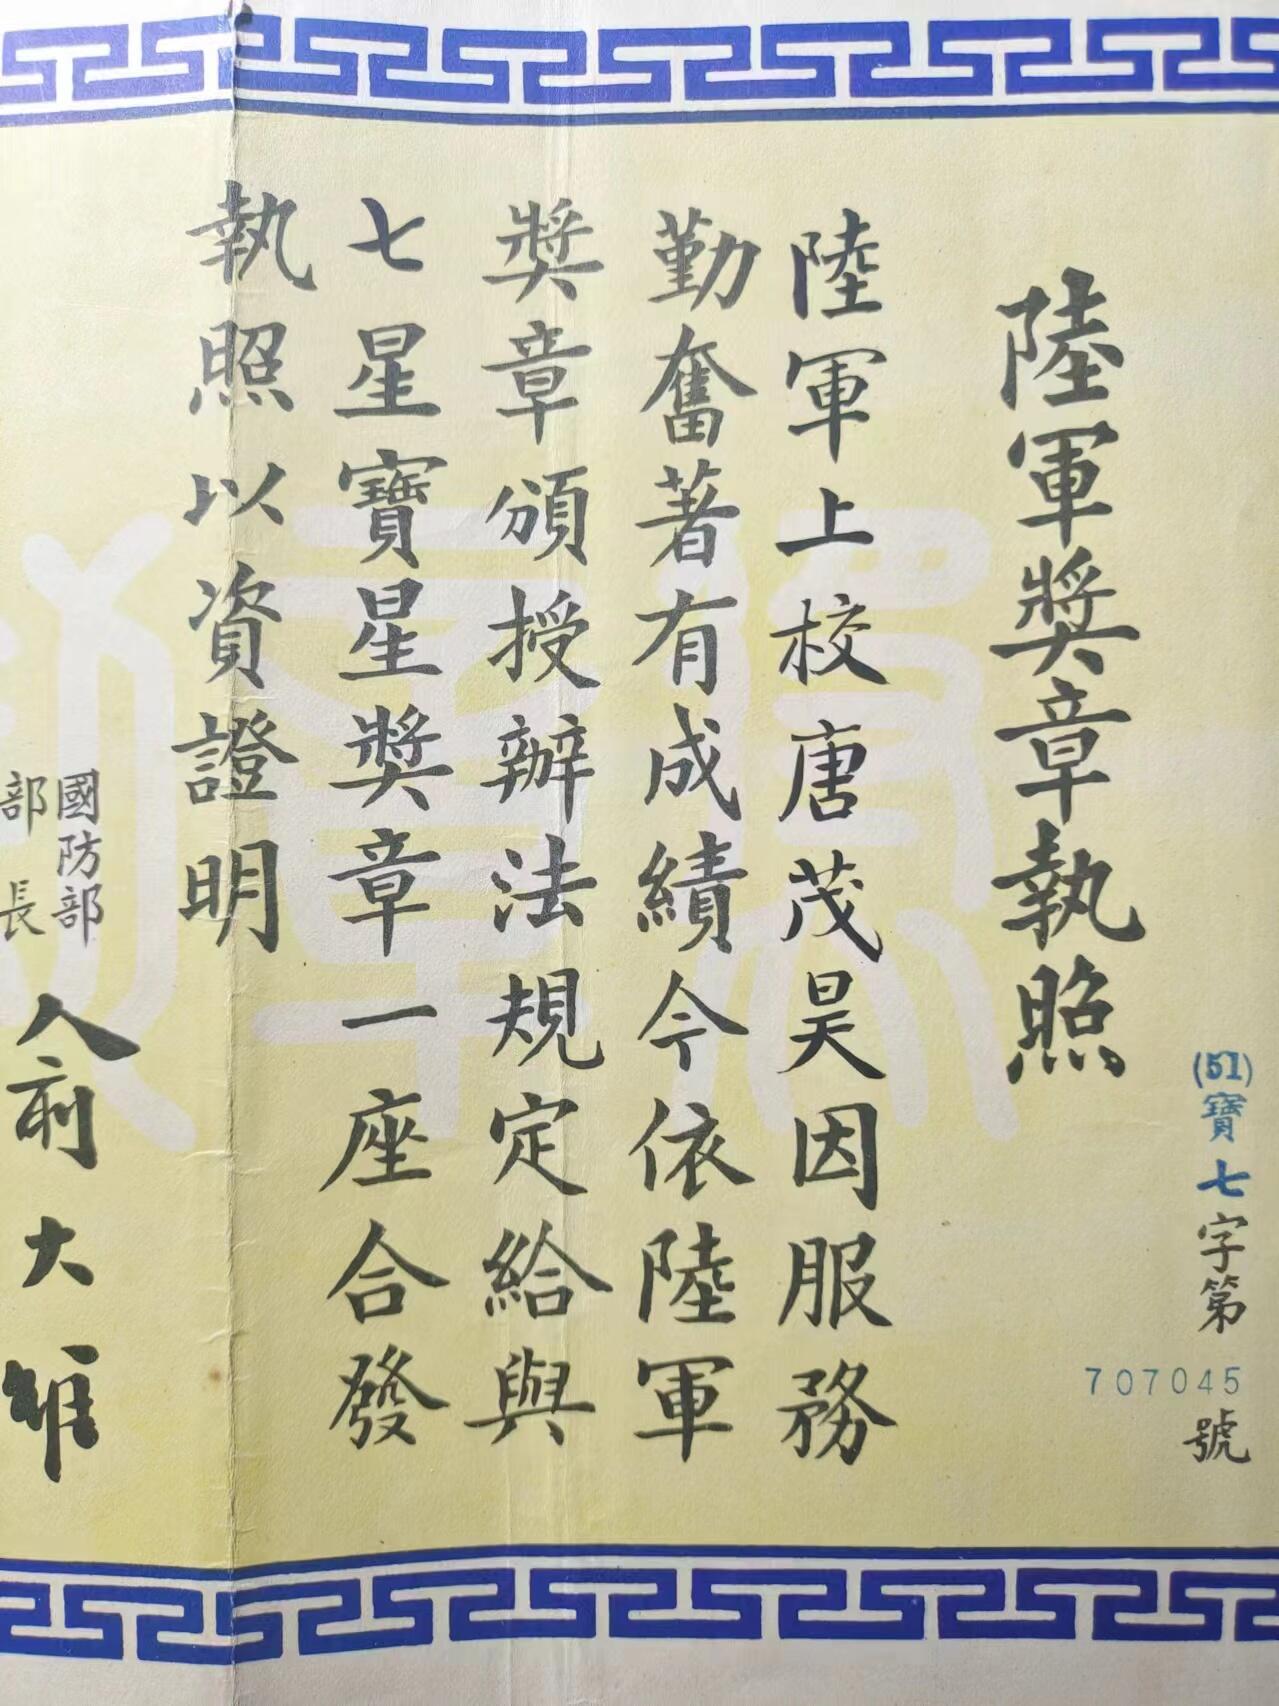 (51)寶七字第707045號
陸軍獎章執照
陸軍上校唐茂昊因服務
勤奮著有成績今依陸軍
獎章頒授辦法規定給與
七星寶星獎章一座合發
執照以資證明
國防部
部長
俞大維